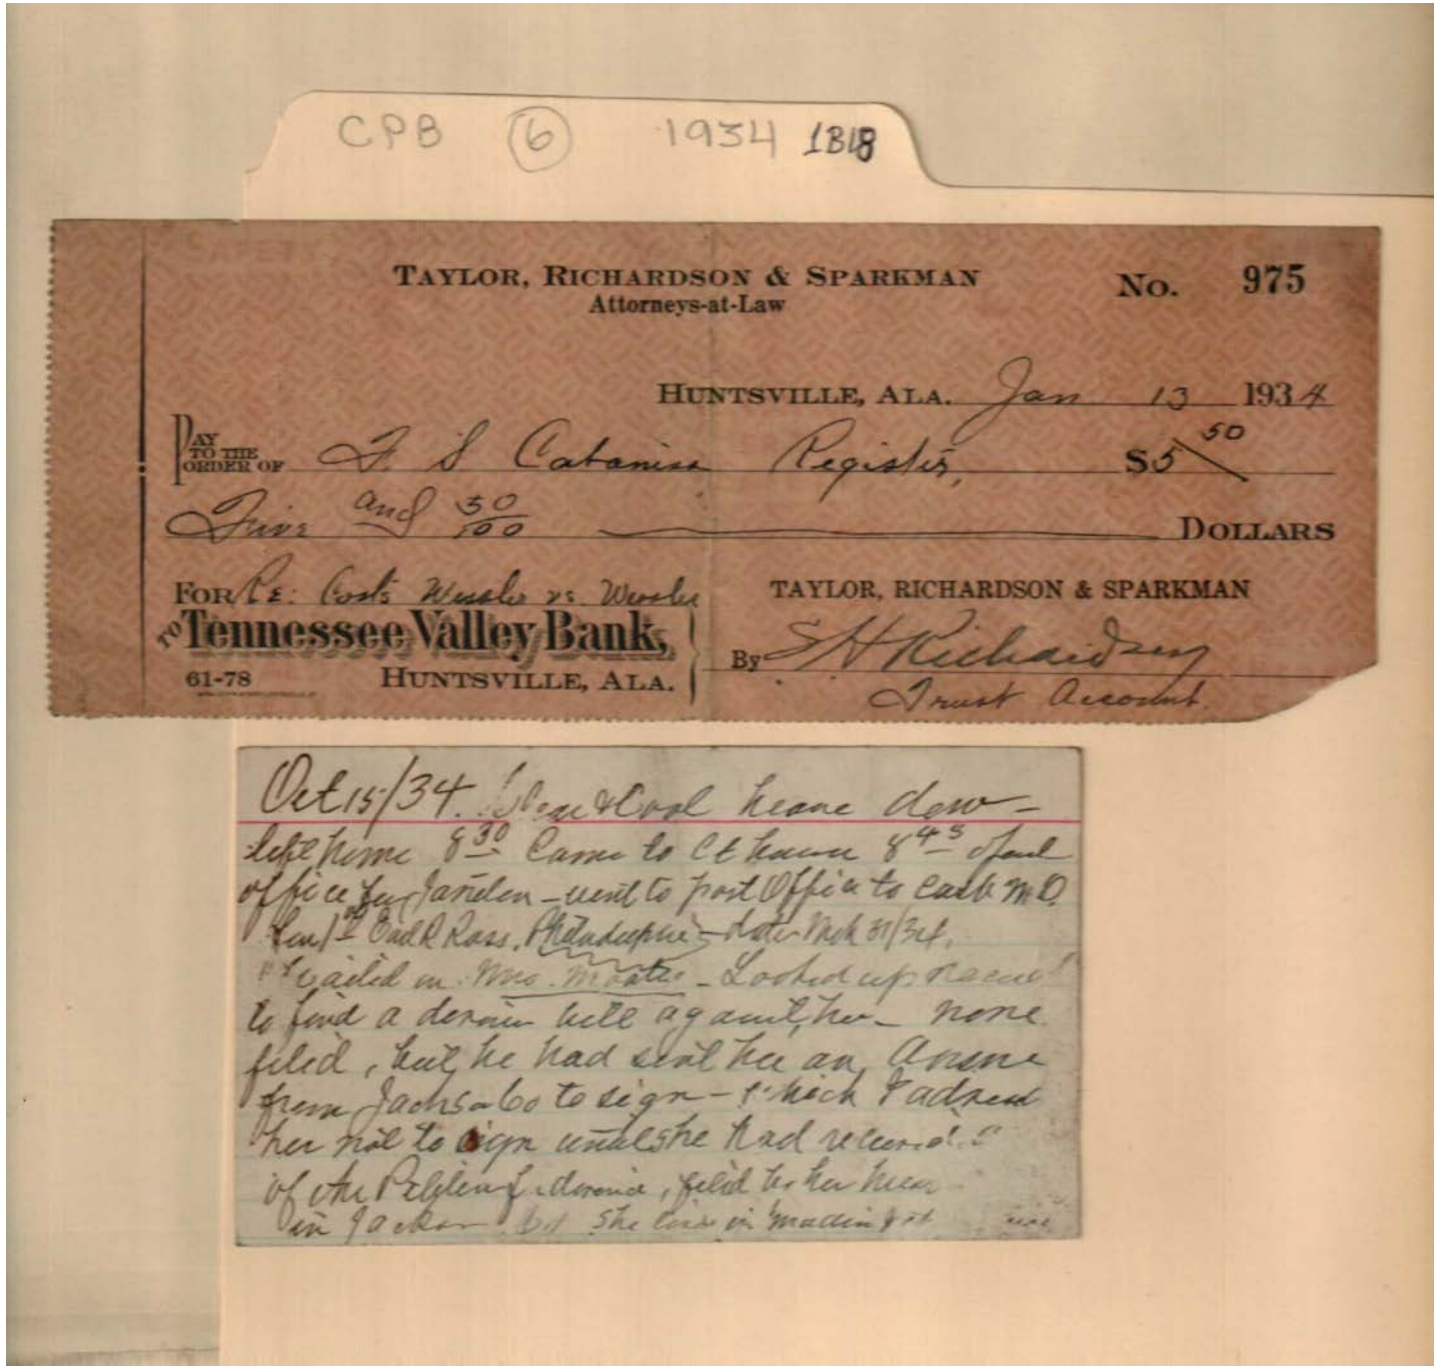 CPB 6 1934 1B18
TAYLOR, RICHARDSON & SPARKMAN
Attorneys-at-Law
No. 975
HUNTSVILLE, ALA. Jan 13 1934
PAY TO THE ORDER OF F. S Cabaniss Register, $5 50
Five and 50/100 DOLLARS
FOR Re: Costs vs.
TAYLOR, RICHARDSON & SPARKMAN
TO Tennessee Valley Bank,
By S H Richardson
61-78 HUNTSVILLE, ALA.
Trust Account
Oct 15/34. Clear & Cool heavy dew-
left home 8 30 Came to Ct house 8 45
office - went to post Office to cash M.O.
Earl R Ross, Philadelphia - date Mch 31/34.
Called on Mrs. - Looked up
to find a divorce bill against her - none
filed, but he had sent her an Answer
from Jackson Co to sign - which I advised
her not to sign until she had
of the divorce, filed
in Jackson Co she lives in